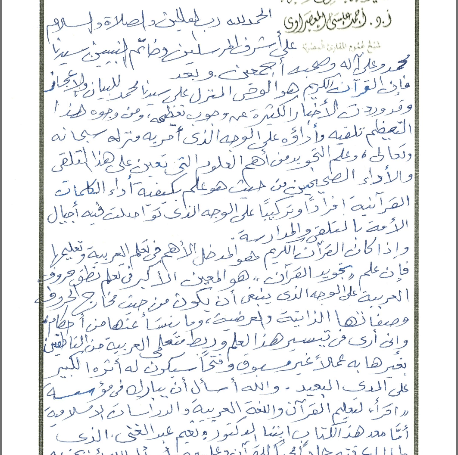 أ.د. أحمد عيسى المعصراوي
الحمد لله رب العالمين والصلاة والسلام
على أشرف المرسلين وخاتم النبيين سيدنا
محمد وعلى آله وصحبه أجمعين. وبعد
فإن القرآن الكريم هو الوحي المنزل على سيدنا محمد للبيان والإعجاز
وقد وردت الأخبار الكثيرة عن وجوب تعظيمه، ومن وجوه هذا
التعظيم تلقيه وأداؤه على الوجه الذي أمر به منزله سبحانه
وتعالى، وعلم التجويد من أهم العلوم التي تعين على هذا التلقي
والأداء الصحيحين من حيث هو علم بكيفية أداء الكلمات
القرآنية إفراداً وتركيباً على الوجه الذي تواصلت فيه أجيال
الأمة بالتلقي والمدارسة.
وإذا كان القرآن الكريم هو المدخل الأهم في تعلم العربية وتعليمها
فإن علم "تجويد القرآن" هو المعين الأكبر في تعلم نطق حروف
العربية على الوجه الذي ينبغي أن يكون من حيث مخارج الحروف
وصفاتها الذاتية والعرضية، وما ينشأ عنها من أحكام
وإني أرى في تيسير هذا العلم وربط متعلمي العربية من الناطقين
بغيرها به عملاً غير مسبوق وفتحاً سيكون له أثره الكبير
على المدى البعيد. والله أسأل أن يبارك في مؤسسة
"اقرأ" لتعليم القرآن واللغة العربية والدراسات الإسلامية
أما معد هذا الكتاب ابننا الدكتور نعيم عبد الغني، الذي